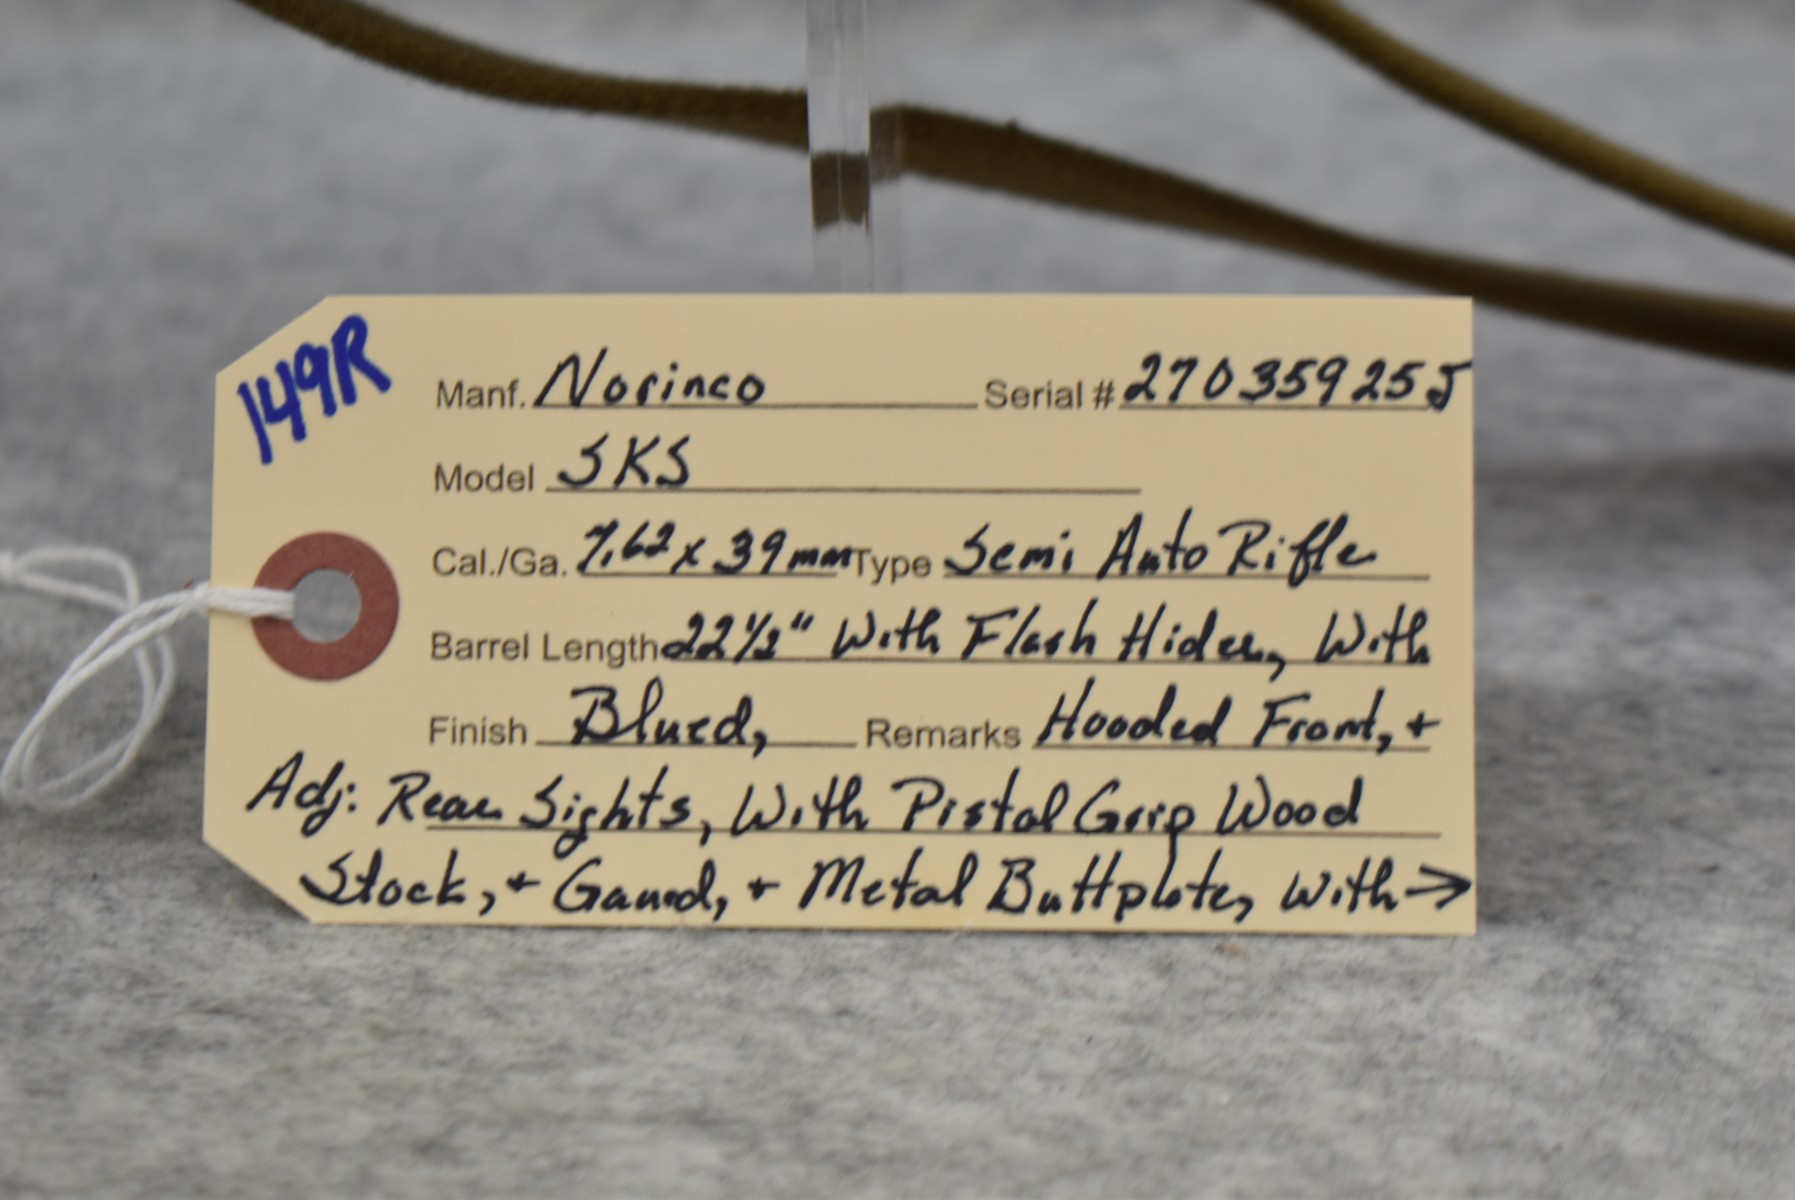 149R
Manf. Norinco Serial # 27035925J
Model SKS
Cal./Ga. 7.62 x 39mm Type Semi Auto Rifle
Barrel Length 22 1/2" With Flash Hider, With
Finish Blued, Remarks Hooded Front, +
Adj: Rear Sights, With Pistol Grip Wood
Stock, + Gaurd, + Metal Buttplate, With →